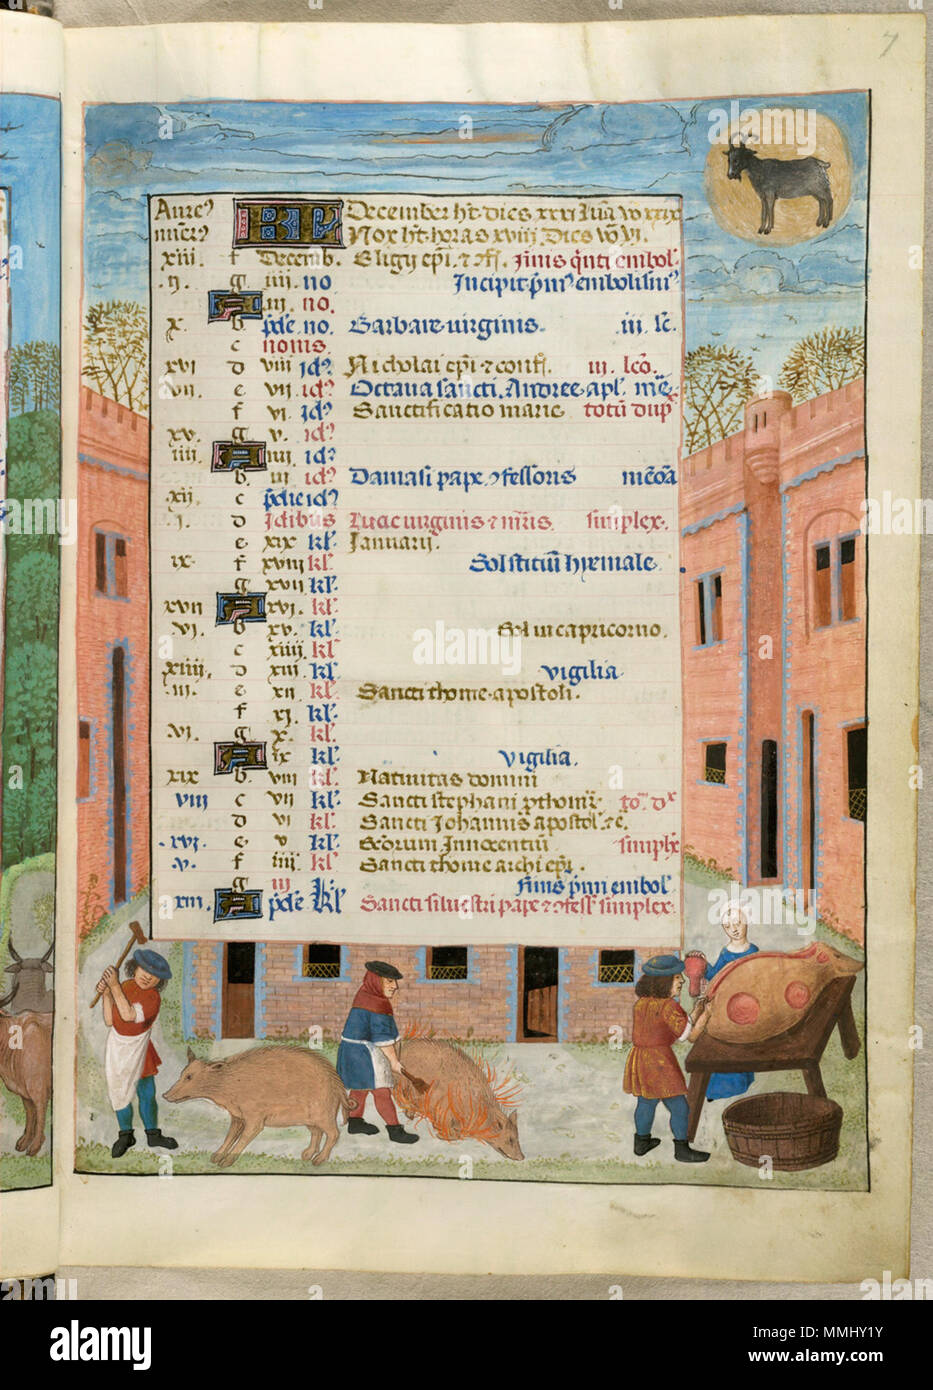 7
Aure⁹ KL December h't dies xxxi luā v̄o xxix
nuer⁹ Nox h't horas xviii. Dies v̄o vi.
xiii. f Decemb. Eligii ep̄i. et 9f. Finis q̄nti embol.
.ii. g iiii. no Incipit p̄m⁹ embolism⁹
A iii. no.
x. b p̄die. no. Barbare virginis. iii. lc.
c nonis.
xvi d viii id⁹ Nicholai ep̄i et conf. iii. lcō.
vii. e vii id⁹ Octava sancti. Andree. apl.
f vi. id⁹ Sanctificatio marie totū dup
xv. g v. id⁹
iiii. A iiii id⁹
b iii id⁹ Damasi pape. 9fessoris
xii. c p̄die id⁹
.i. d Idibus Lucie virginis et m̄ris. simplex.
e xix kl. Januarii.
ix. f xviii kl. Solsticiū hyemale.
g xvii kl.
xvii A xvi. kl.
vi. b xv. kl. Sol in capricorno.
c xiiii kl
xiiii. d xiii. kl. vigilia
.iii. e xii kl. Sancti thome. apostoli.
f xi. kl.
.vi. g x. kl.
A ix kl. vigilia.
xix b. viii kl. Nativitas domini
viii c vii kl. Sancti stephani p̄thom̄r. to. d
d vi kl. Sancti Johannis apostol. et e.
.xvi. e v kl. Scorum Innocentiu simplx
.v. f iiii kl Sancti thome archi ep̄i.
g iii kl. Finis p̄mi embol.
xiii. A p̄die kl Sancti silvestri pape et 9fess. simplex.
alamy
alamy
Image ID: MMHY1Y
www.alamy.com